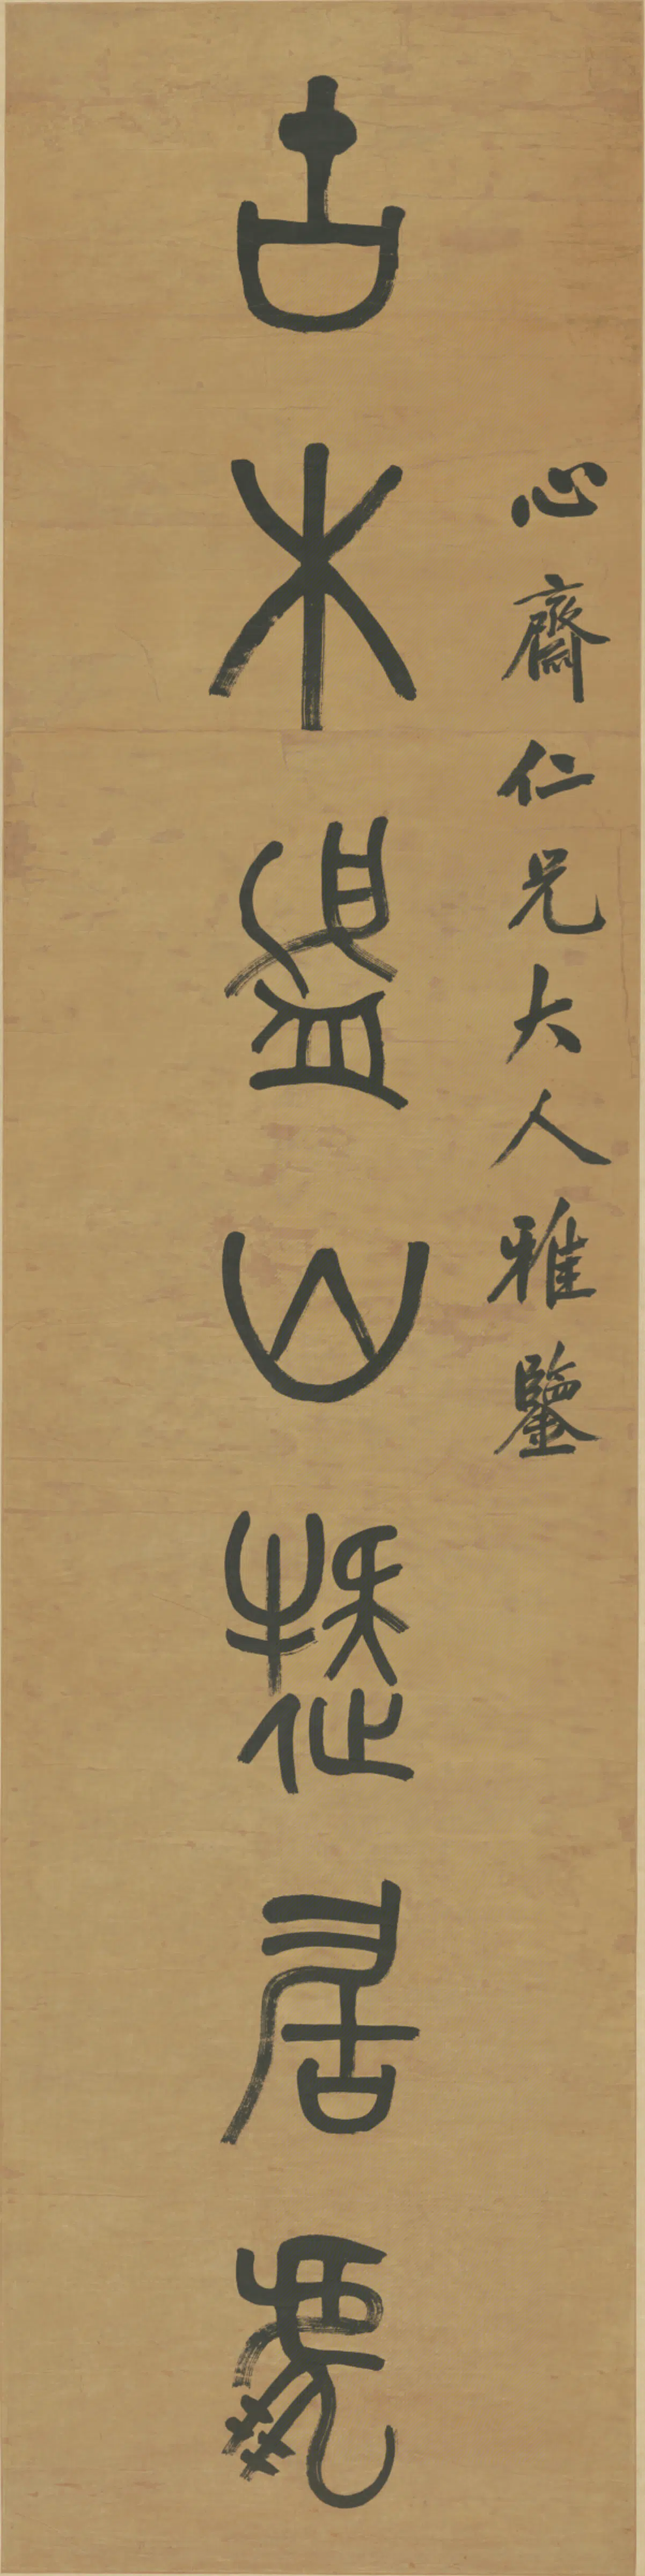 心齋仁兄大人雅鑒
古木山居